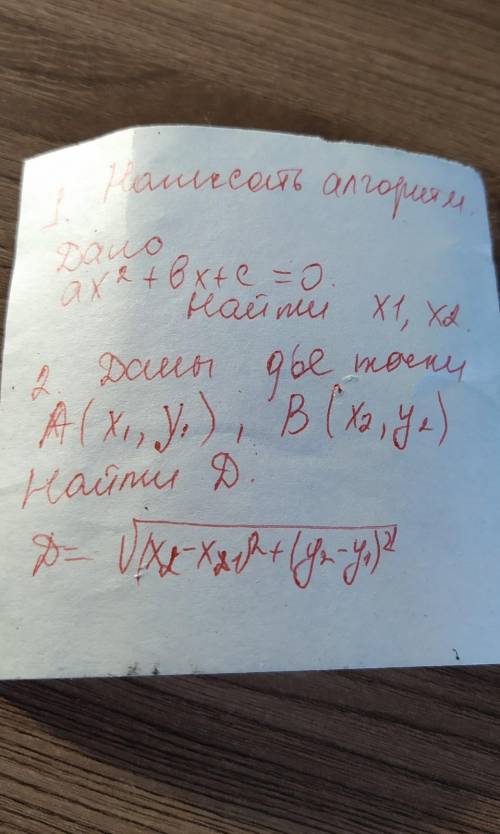 1. Написать алгоритм.
Дано
ax² + bx + c = 0.
Найти x1, x2.
2. Даны две точки
A(x₁, y₁), B(x₂, y₂)
Найти D.
D = √(x₂ - x₁)² + (y₂ - y₁)²